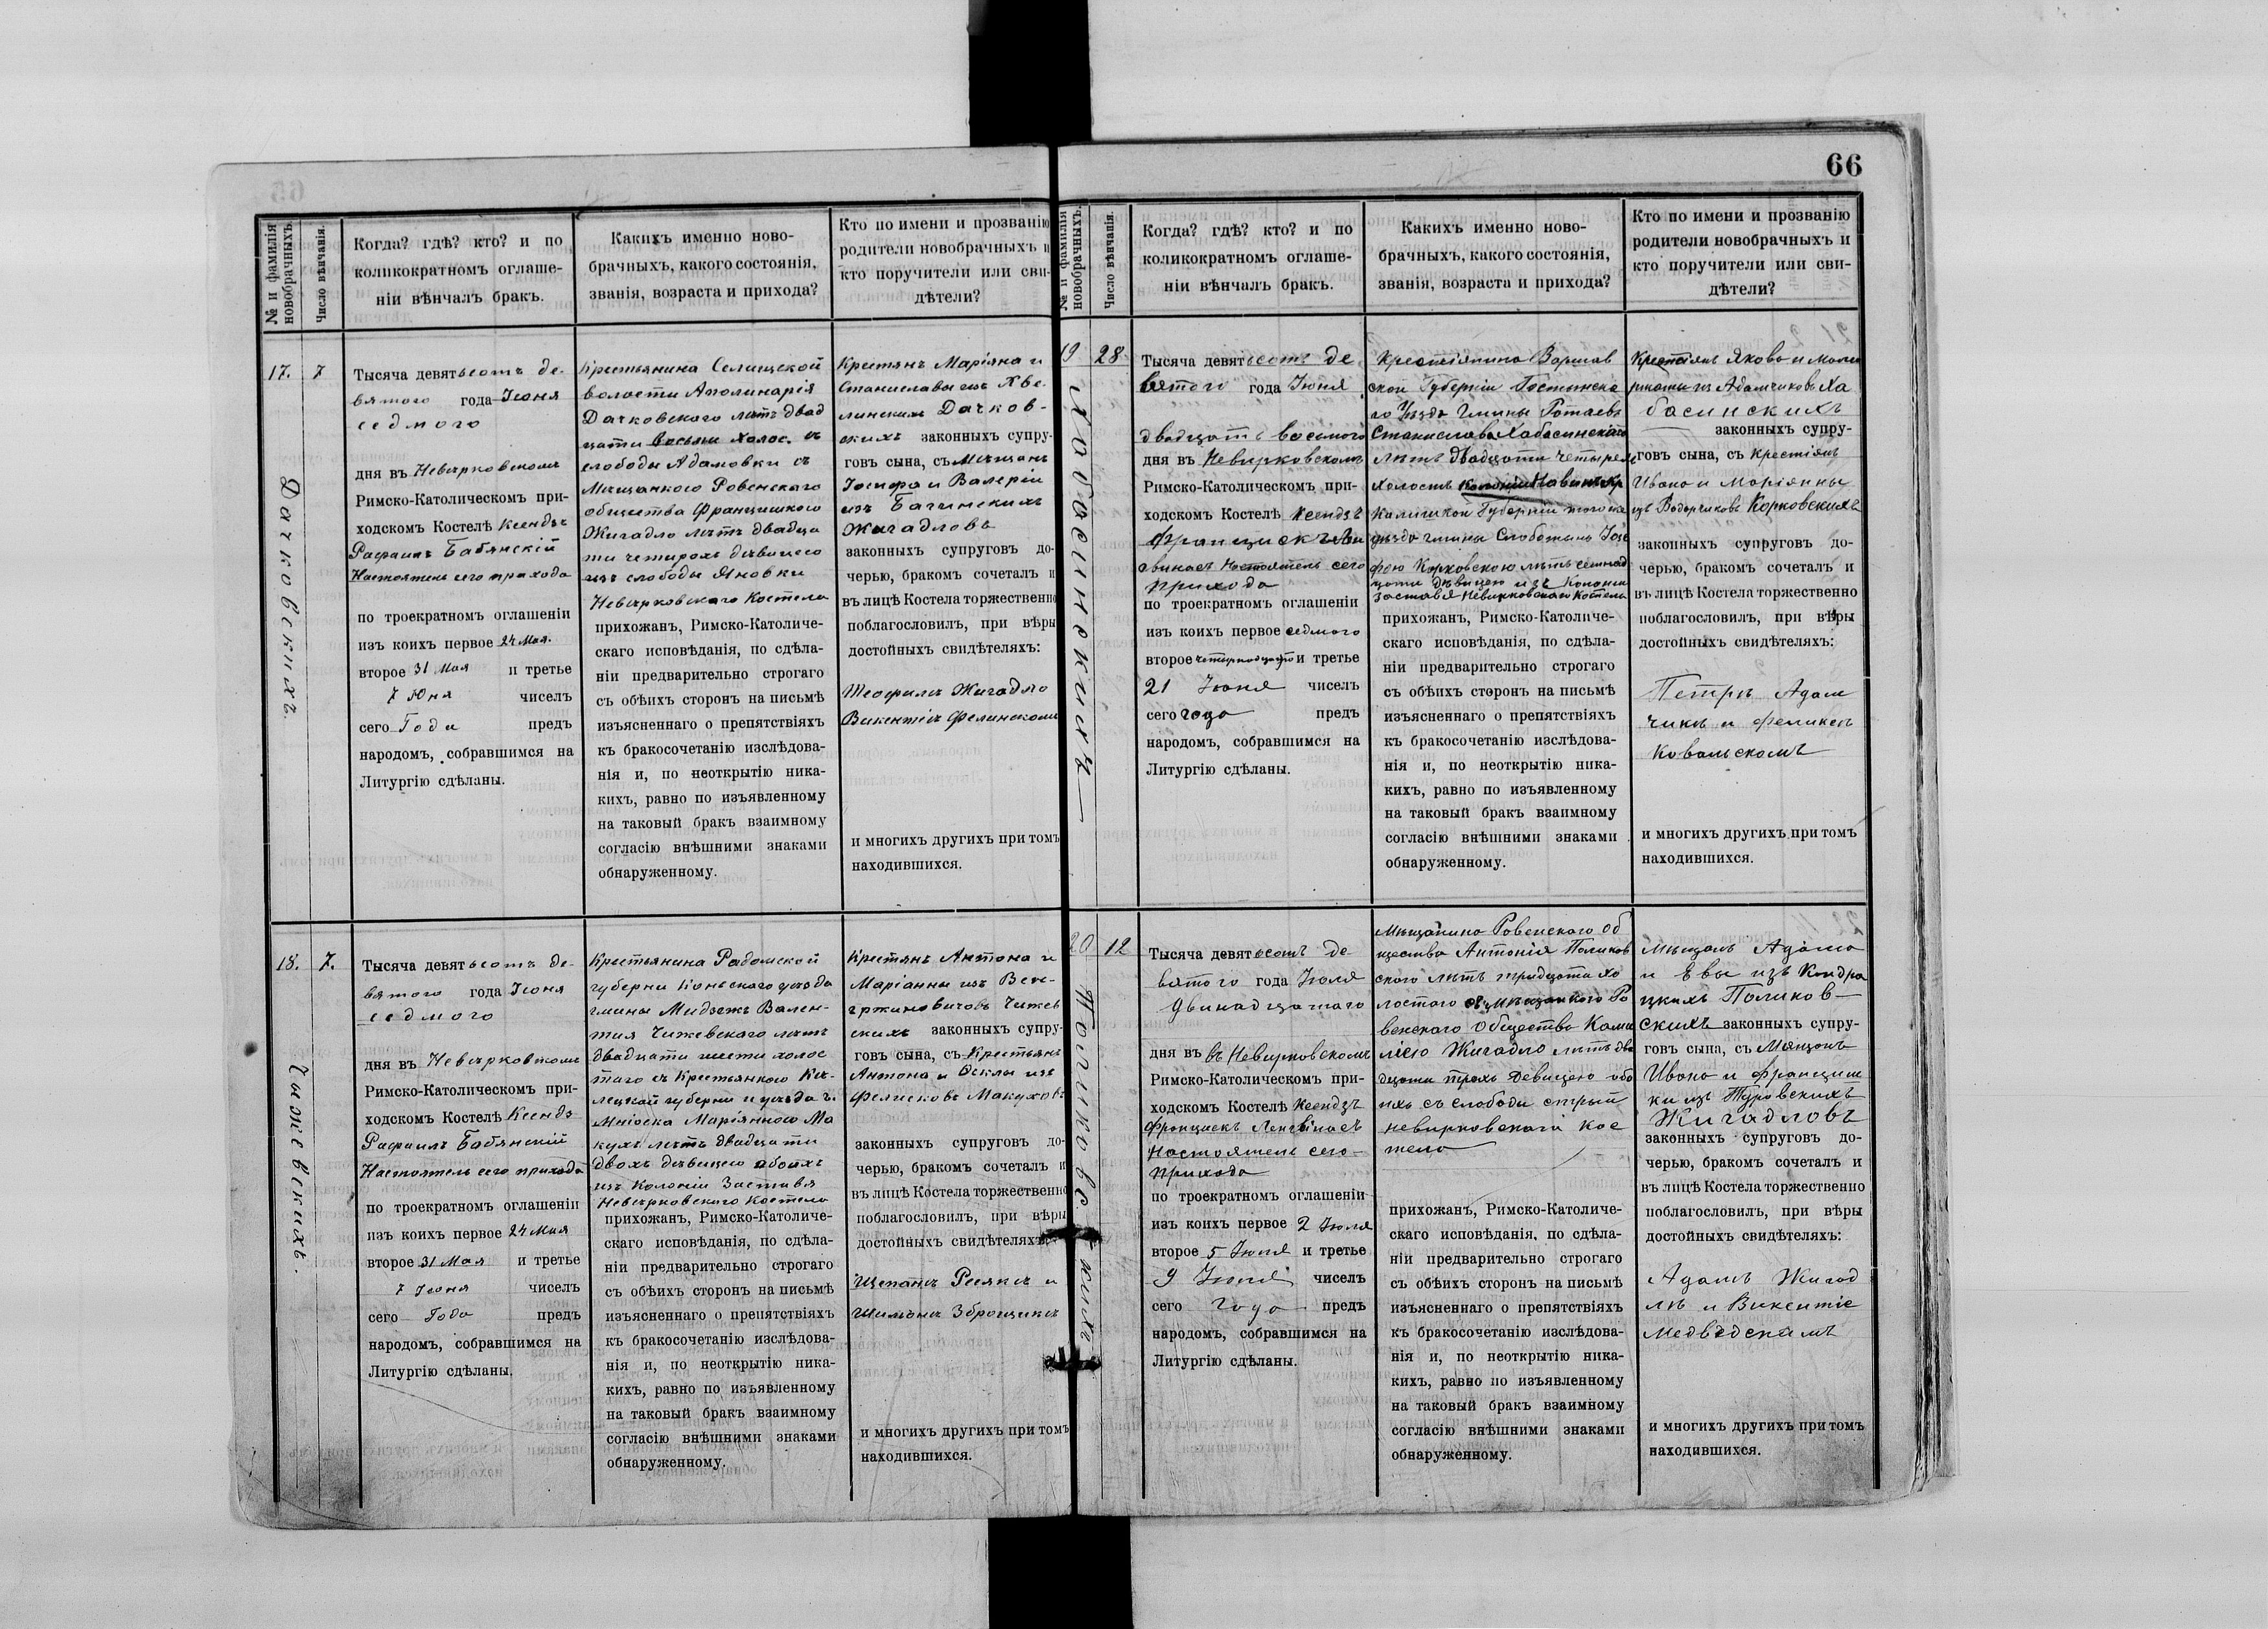 66
№ и фамилія новобрачныхъ.
Число вѣнчанія.
Когда? гдѣ? кто? и по
коликократномъ оглаше-
ніи вѣнчалъ бракъ.
Какихъ именно ново-
брачныхъ, какого состоянія,
званія, возраста и прихода?
Кто по имени и прозванію
родители новобрачныхъ и
кто поручители или сви-
дѣтели?
17.
Дачковскихъ.
7
Тысяча девятьсотъ де-
вятого года Іюня
седмого
дня въ Невирковскомъ
Римско-Католическомъ при-
ходскомъ Костелѣ Ксендзъ
Рафаилъ Бабянскій
Настоятель сего прихода
по троекратномъ оглашеніи
изъ коихъ первое 24 Мая.
второе 31 Мая и третье
7 Юня чиселъ
сего Года предъ
народомъ, собравшимся на
Литургію сдѣланы.
Крестьянина Селищской
волости Аполинарія
Дачковского лѣтъ двад
цати восьми холос. съ
слободы Адамовки съ
Мѣщанкою Ровенскаго
общества Францишкою
Жигадло лѣтъ двадца
ти четырохъ дѣвицею
изъ слободы Яновки
Невирковскаго Костела
прихожанъ, Римско-Католиче-
скаго исповѣданія, по сдѣла-
ніи предварительно строгаго
съ обѣихъ сторонъ на письмѣ
изъясненнаго о препятствіяхъ
къ бракосочетанію изслѣдова-
нія и, по неоткрытію ника-
кихъ, равно по изъявленному
на таковый бракъ взаимному
согласію внѣшними знаками
обнаруженному.
Крестянъ Маріяна и
Станиславы изъ Хве-
линскихъ Дачков-
скихъ законныхъ супру-
говъ сына, съ Мѣщанъ
Іосифа и Валеріи
изъ Багинскихъ
Жигадловъ
законныхъ супруговъ до-
черью, бракомъ сочеталъ и
въ лицѣ Костела торжественно
поблагословилъ, при вѣры
достойныхъ свидѣтеляхъ:
Теофилъ Жигадло
Викентій Фелинскомъ
и многихъ другихъ при томъ
находившихся.
18.
Чижевскихъ.
7.
Тысяча девятьсотъ де-
вятого года Іюня
седмого
дня въ Невирковскомъ
Римско-Католическомъ при-
ходскомъ Костелѣ Ксендз
Рафаилъ Бабянскій
Настоятель сего прихода
по троекратномъ оглашеніи
изъ коихъ первое 24 Мая
второе 31 Мая и третье
7 Іюня чиселъ
сего Года предъ
народомъ, собравшимся на
Литургію сдѣланы.
Крестьянина Радомской
губерни Коньского уезда
гмины Мидзежъ Вален-
тия Чижевскаго лѣтъ
двадцати шести холос
таго съ Крестьянкою Кѣ-
лецкой губерни и уезда г.
Мніоска Маріянною Ма
кухъ лѣтъ двадцати
двохъ дѣвицею обоихъ
изъ Колоніи Заставя
Невирковского Костела
прихожанъ, Римско-Католиче-
скаго исповѣданія, по сдѣла-
ніи предварительно строгаго
съ обѣихъ сторонъ на письмѣ
изъясненнаго о препятствіяхъ
къ бракосочетанію изслѣдова-
нія и, по неоткрытію ника-
кихъ, равно по изъявленному
на таковый бракъ взаимному
согласію внѣшними знаками
обнаруженному.
Крестянъ Антона и
Маріанны изъ Вен-
гржиновичовъ Чижев
скихъ законныхъ супру-
говъ сына, съ Крестьянъ
Антона и Феклы изъ
Фелисковъ Макуховъ
законныхъ супруговъ до-
черью, бракомъ сочеталъ и
въ лицѣ Костела торжественно
поблагословилъ, при вѣры
достойныхъ свидѣтеляхъ:
Щепанъ Рсякъ и
Шимонъ Зброщикъ
и многихъ другихъ при томъ
находившихся.
№ и фамилія новобрачныхъ.
Число вѣнчанія.
Когда? гдѣ? кто? и по
коликократномъ оглаше-
ніи вѣнчалъ бракъ.
Какихъ именно ново-
брачныхъ, какого состоянія,
званія, возраста и прихода?
Кто по имени и прозванію
родители новобрачныхъ и
кто поручители или сви-
дѣтели?
19
Хабасинскихъ
28
Тысяча девятьсотъ де
вятого года Іюня
двадцать восьмого
дня въ Невирковскомъ
Римско-Католическомъ при-
ходскомъ Костелѣ Ксендзъ
Францискъ Лен
гвинасъ Настоятель сего
прихода
по троекратномъ оглашеніи
изъ коихъ первое седмого
второе четырнадцато и третье
21 Іюня чиселъ
сего года предъ
народомъ, собравшимся на
Литургію сдѣланы.
Крестіянина Варшав
ской Губерніи Гостынска
го Уѣзда Гмины Ротаевъ
Станислава Хабасинскаго
лѣтъ двадцати четырехъ
Холостъ
Калишкой Губерніи того же
уѣзда гмины Слободкинъ Іозе
фою Корковскою лѣтъ семнад
цати дѣвицею изъ Колоніи
Заставя Невирковскаго Костела
прихожанъ, Римско-Католиче-
скаго исповѣданія, по сдѣла-
ніи предварительно строгаго
съ обѣихъ сторонъ на письмѣ
изъясненнаго о препятствіяхъ
къ бракосочетанію изслѣдова-
нія и, по неоткрытію ника-
кихъ, равно по изъявленному
на таковый бракъ взаимному
согласію внѣшними знаками
обнаруженному.
Крестіянъ Якова и
изъ Адамчиковъ Ха
басинскихъ
законныхъ супру-
говъ сына, съ Крестіянъ
Ивана и Маріянны
изъ Корковскихъ
законныхъ супруговъ до-
черью, бракомъ сочеталъ и
въ лицѣ Костела торжественно
поблагословилъ, при вѣры
достойныхъ свидѣтеляхъ:
Петръ Адам
чикъ и Феликсъ
Ковальскомъ
и многихъ другихъ при томъ
находившихся.
20
Поликовскихъ
12
Тысяча девятьсотъ де
вятого года Іюля
двинадцатаго
дня въ въ Невирковскомъ
Римско-Католическомъ при-
ходскомъ Костелѣ Ксендзъ
Францискъ Ленгвинасъ
Настоятель сего
прихода
по троекратномъ оглашеніи
изъ коихъ первое 2 Іюля
второе 5 Іюля и третье
9 Іюля чиселъ
сего года предъ
народомъ, собравшимся на
Литургію сдѣланы.
Мѣщанина Ровенского Об
щества Антонія Поликов
ского лѣтъ тридцати хо
лостого съ Мѣщанкою Ро
венского Общества Ками
лією Жигадло лѣтъ два
дцати трохъ девицею обо
ихъ съ слободы старый
невирковскаго Кос
тела
прихожанъ, Римско-Католиче-
скаго исповѣданія, по сдѣла-
ніи предварительно строгаго
съ обѣихъ сторонъ на письмѣ
изъясненнаго о препятствіяхъ
къ бракосочетанію изслѣдова-
нія и, по неоткрытію ника-
кихъ, равно по изъявленному
на таковый бракъ взаимному
согласію внѣшними знаками
обнаруженному.
Мѣщанъ Адама
и Евы изъ Кондра
цкихъ Поликов-
скихъ законныхъ супру-
говъ сына, съ Мѣщанъ
Ивана и Франциш
ки изъ Туровскихъ
Жигадловъ
законныхъ супруговъ до-
черью, бракомъ сочеталъ и
въ лицѣ Костела торжественно
поблагословилъ, при вѣры
достойныхъ свидѣтеляхъ:
Адамъ Жигад
лъ и Викентіе
Медвѣдскимъ
и многихъ другихъ при томъ
находившихся.